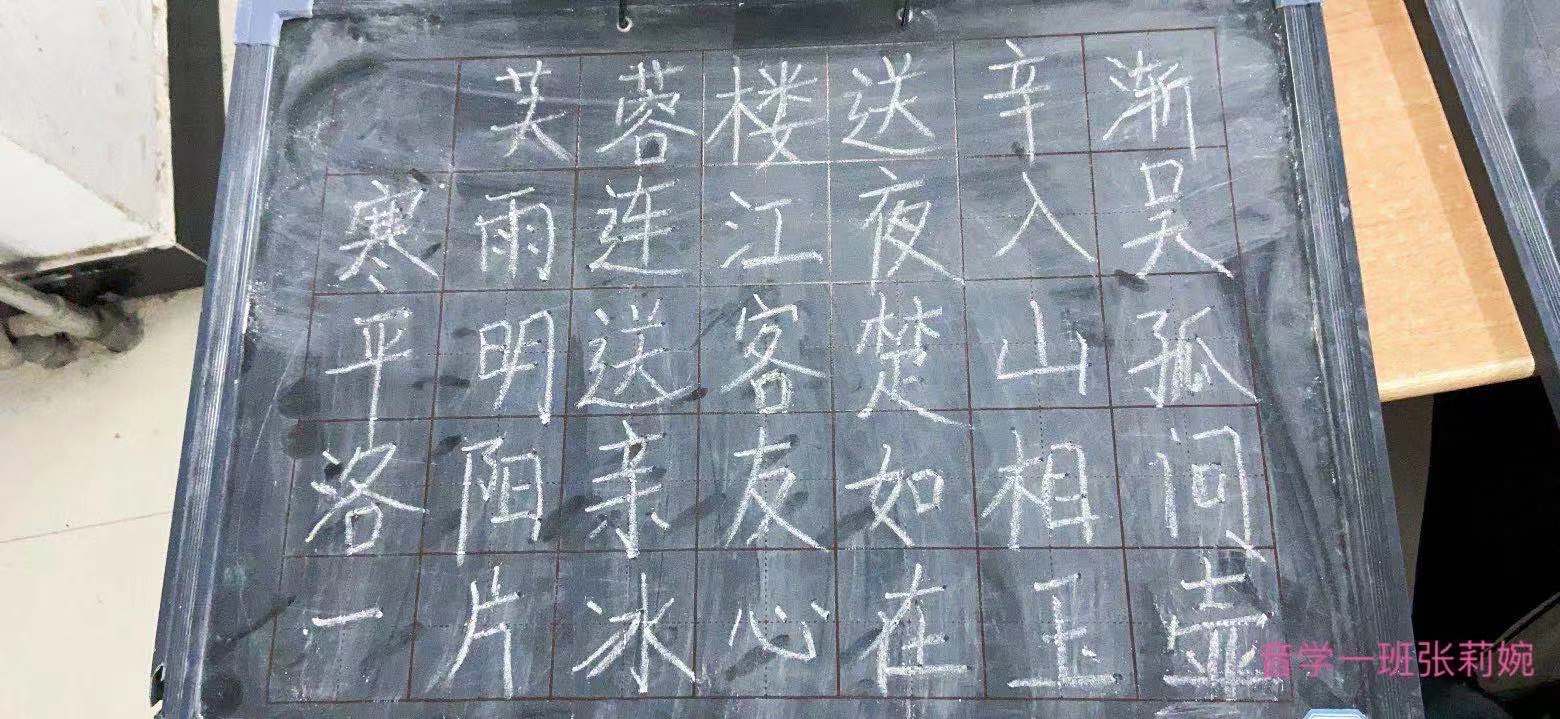 芙蓉楼送辛渐
寒雨连江夜入吴
平明送客楚山孤
洛阳亲友如相问
一片冰心在玉壶
音学一班张莉婉